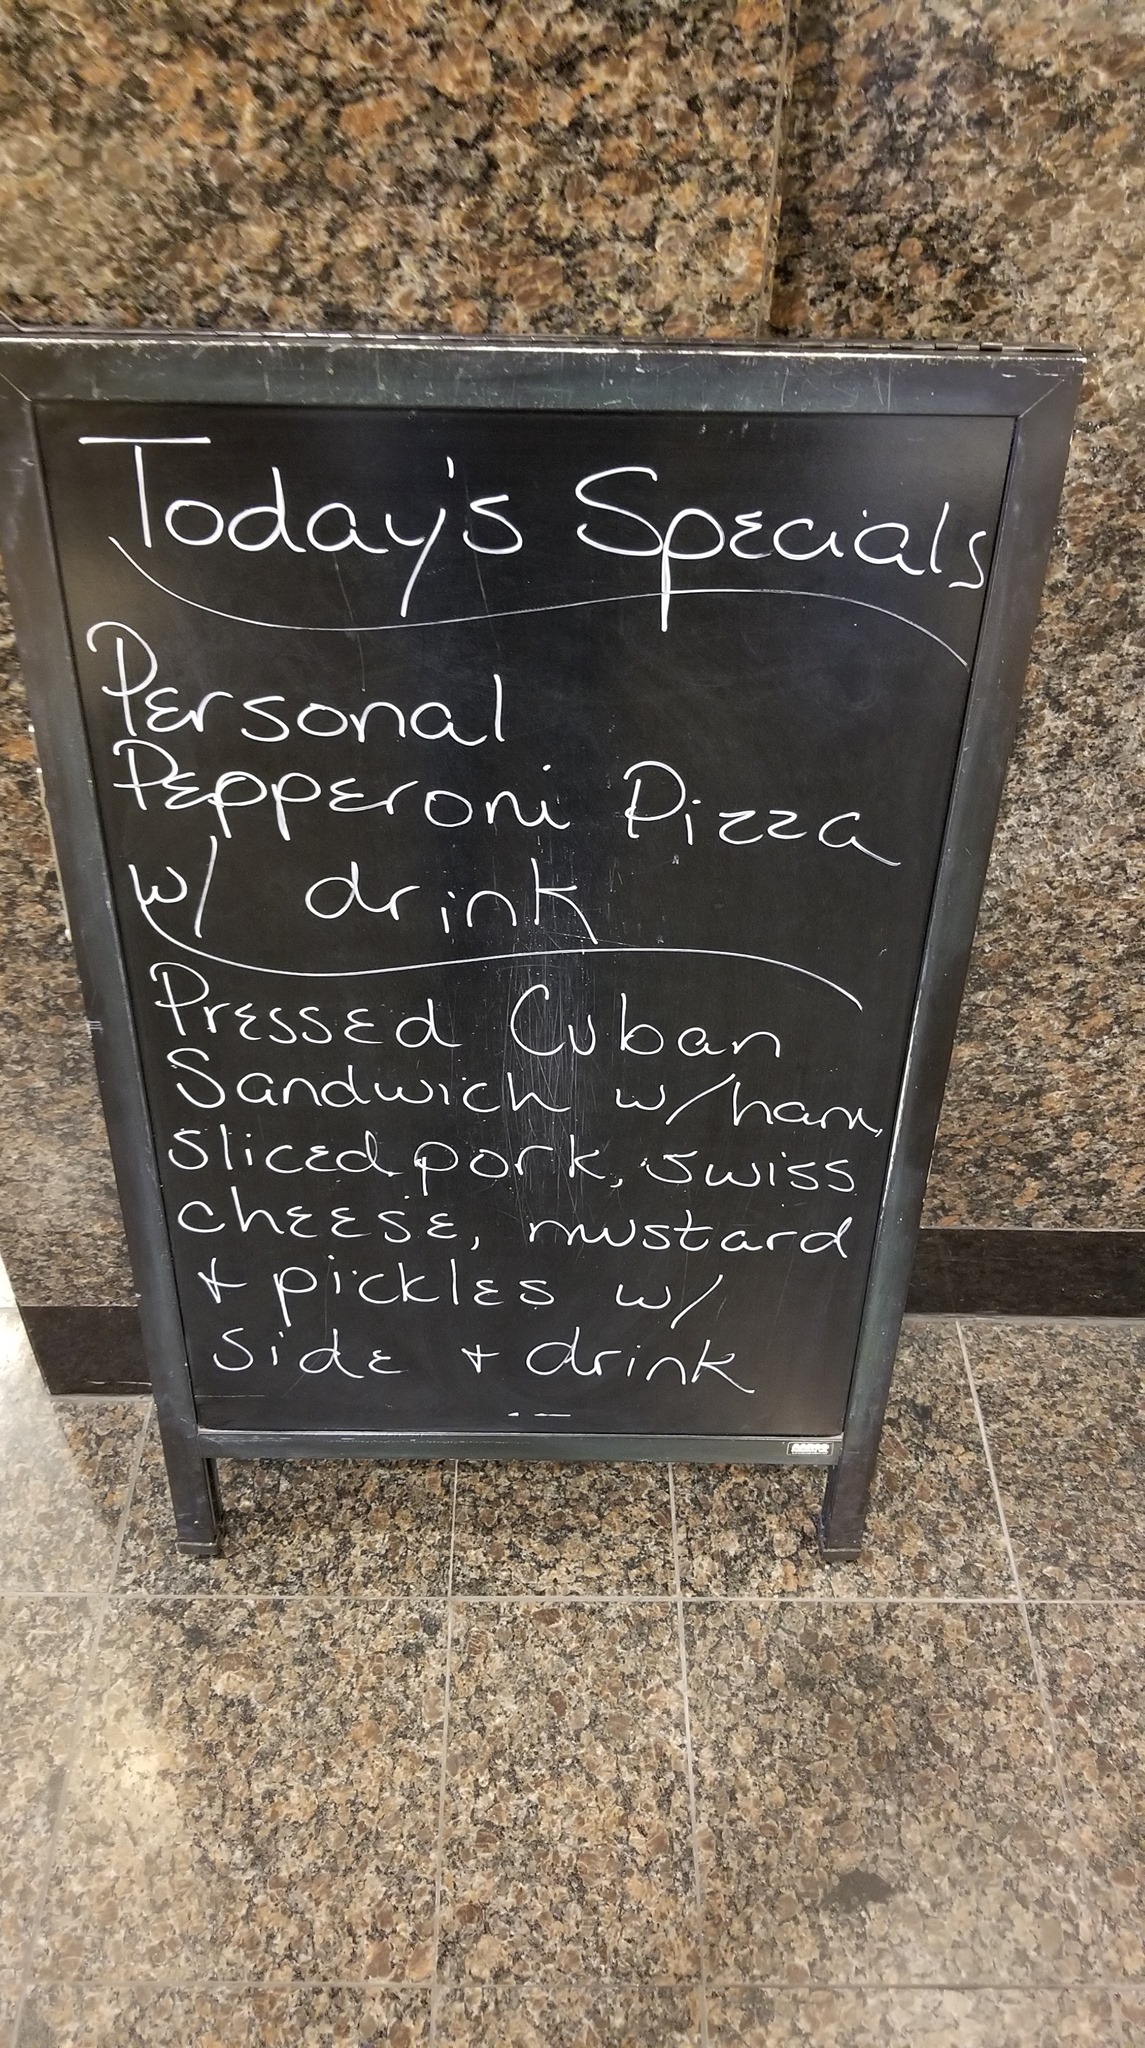 Today's Specials
Personal
Pepperoni Pizza
w/ drink
Pressed Cuban
Sandwich w/ham,
sliced pork, swiss
cheese, mustard
+ pickles w/
side + drink